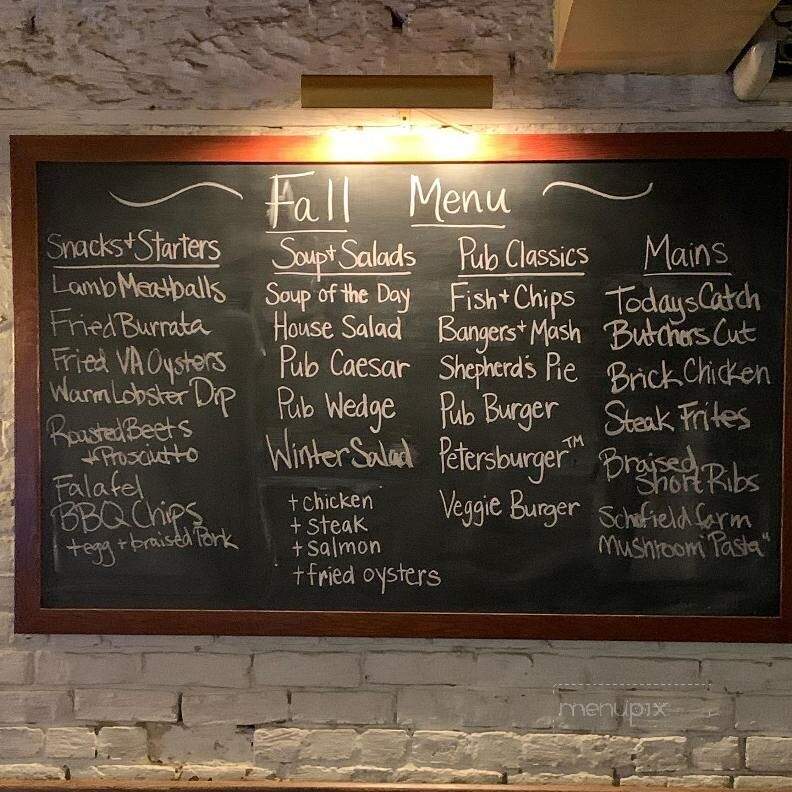 Fall Menu
Snacks + Starters
Lamb Meatballs
Fried Burrata
Fried VA Oysters
Warm Lobster Dip
Roasted Beets
+ Prosciutto
Falafel
BBQ Chips
+egg + braised Pork
Soup + Salads
Soup of the Day
House Salad
Pub Caesar
Pub Wedge
Winter Salad
+ chicken
+ steak
+ salmon
+ fried oysters
Pub Classics
Fish + Chips
Bangers + Mash
Shepherd's Pie
Pub Burger
Petersburger™
Veggie Burger
Mains
Todays Catch
Butchers Cut
Brick Chicken
Steak Frites
Braised
Short Ribs
Schofield farm
Mushroom "Pasta"
menupix